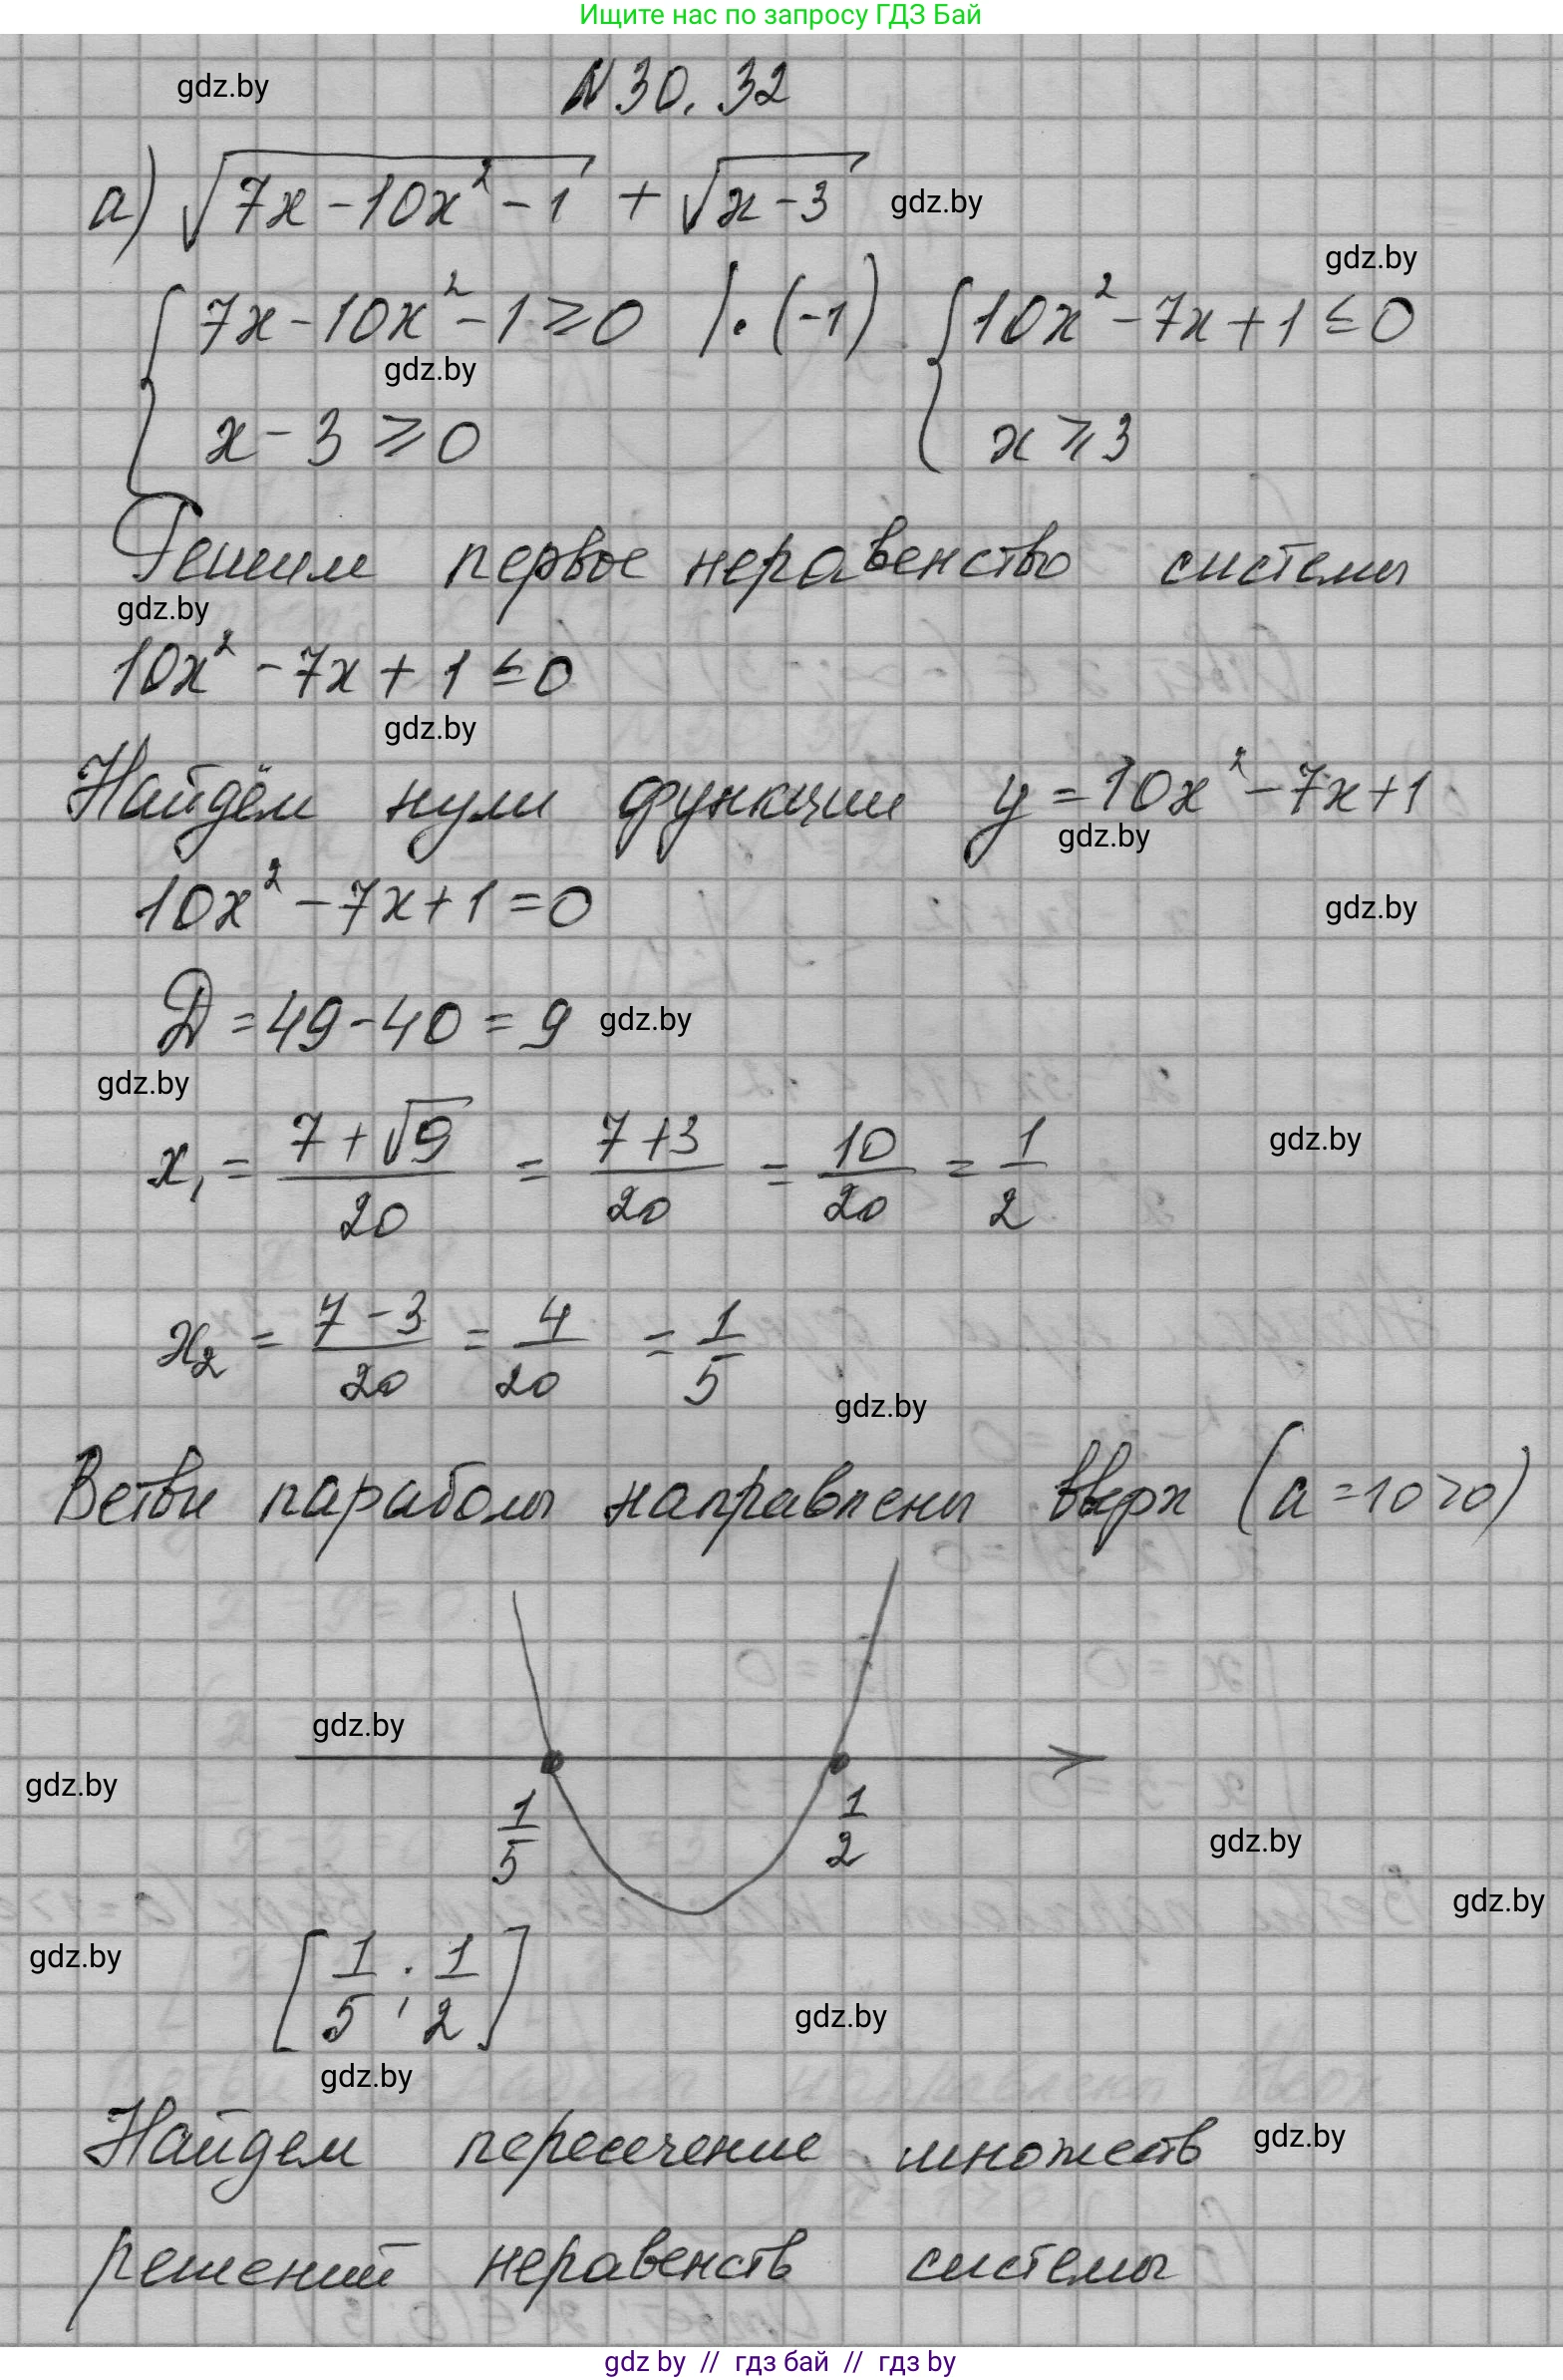 Ищите нас по запросу ГДЗ Бай
gdz.by
N 30. 32
а) √(7x - 10x² - 1) + √(x - 3) gdz.by
gdz.by
{ 7x - 10x² - 1 ≥ 0 | · (-1) { 10x² - 7x + 1 ≤ 0
gdz.by
x - 3 ≥ 0 x ≥ 3
Решим первое неравенство системы
gdz.by
10x² - 7x + 1 ≤ 0
gdz.by
Найдём нули функции y = 10x² - 7x + 1
gdz.by
10x² - 7x + 1 = 0
gdz.by
D = 49 - 40 = 9 gdz.by
gdz.by
x₁ = (7 + √9)/20 = (7 + 3)/20 = 10/20 = 1/2
gdz.by
x₂ = (7 - 3)/20 = 4/20 = 1/5
gdz.by
Ветви параболы направлены вверх (a = 10 > 0)
gdz.by
gdz.by
1/5 1/2
gdz.by
gdz.by
gdz.by
[1/5 ; 1/2]
gdz.by
gdz.by
Найдем пересечение множеств
gdz.by
решений неравенств системы
gdz by // гдз бай // гдз by